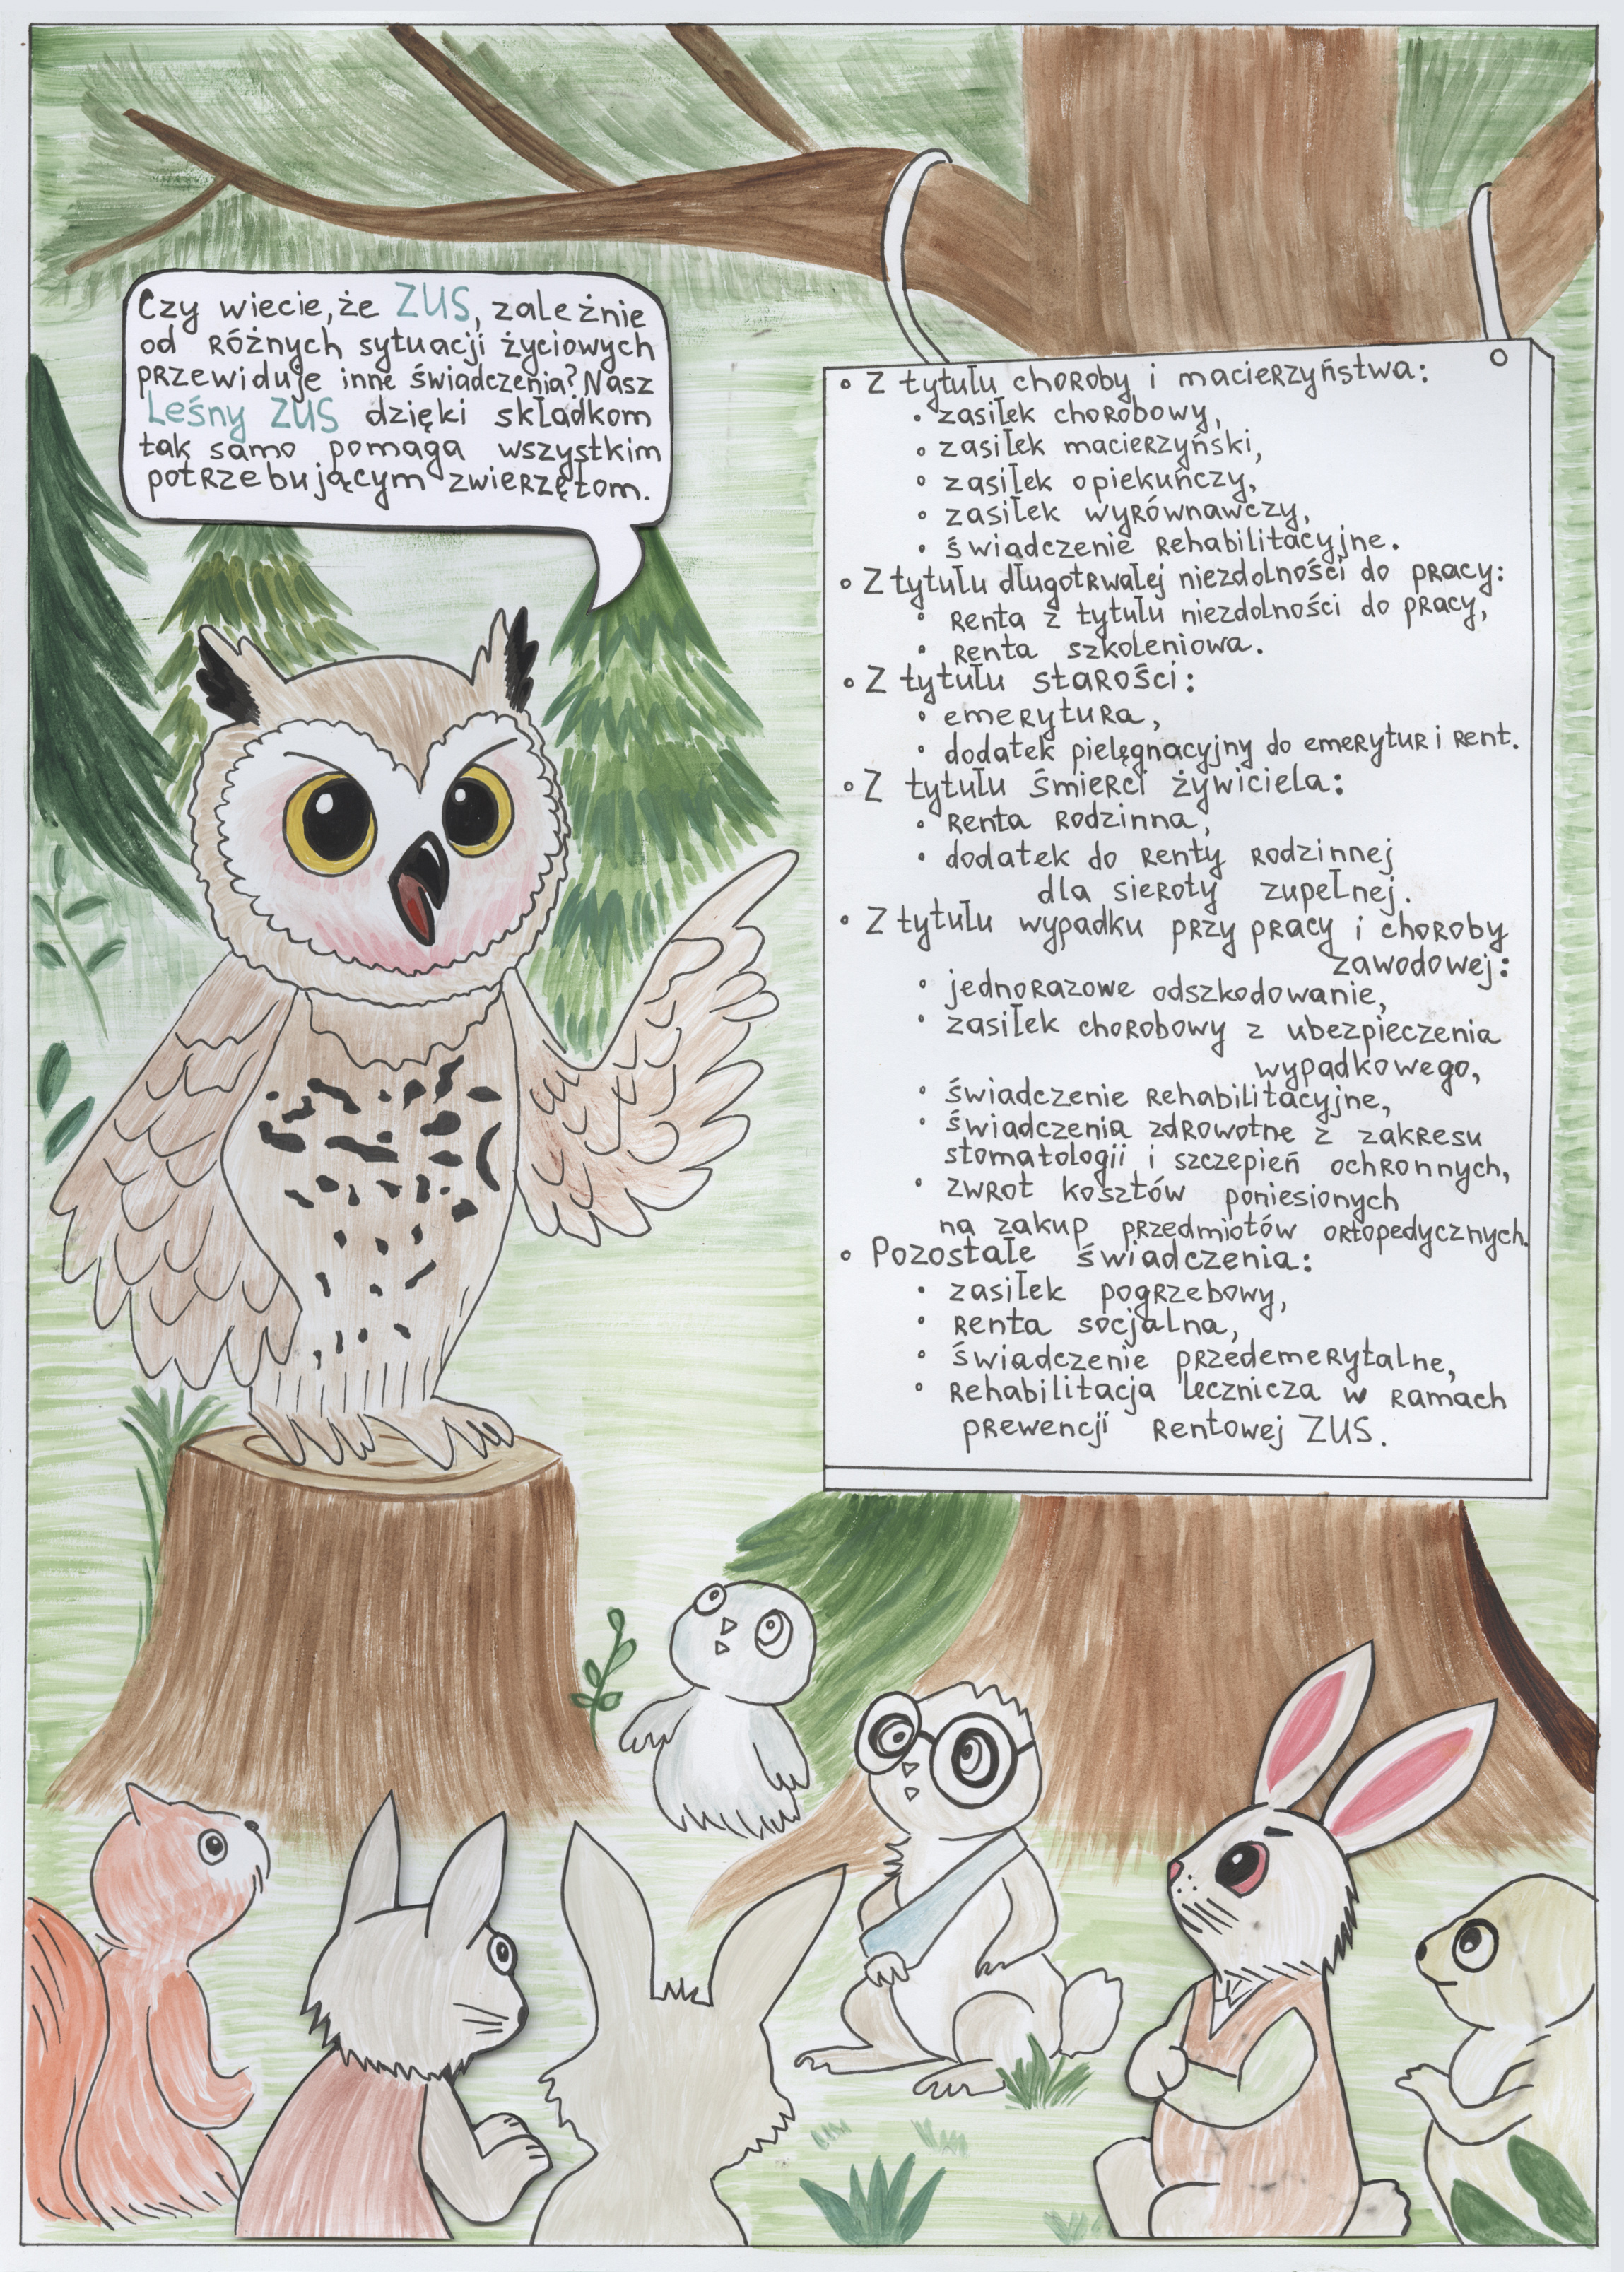 Czy wiecie, że ZUS, zależnie
od różnych sytuacji życiowych
przewiduje inne świadczenia? Nasz
Leśny ZUS dzięki składkom
tak samo pomaga wszystkim
potrzebującym zwierzętom.
• Z tytułu choroby i macierzyństwa:
• zasiłek chorobowy,
• zasiłek macierzyński,
• zasiłek opiekuńczy,
• zasiłek wyrównawczy,
• świadczenie rehabilitacyjne.
• Z tytułu długotrwałej niezdolności do pracy:
• renta z tytułu niezdolności do pracy,
• renta szkoleniowa.
• Z tytułu starości:
• emerytura,
• dodatek pielęgnacyjny do emerytur i rent.
• Z tytułu śmierci żywiciela:
• renta rodzinna,
• dodatek do renty rodzinnej
dla sieroty zupełnej.
• Z tytułu wypadku przy pracy i choroby
zawodowej:
• jednorazowe odszkodowanie,
• zasiłek chorobowy z ubezpieczenia
wypadkowego,
• świadczenie rehabilitacyjne,
• świadczenia zdrowotne z zakresu
stomatologii i szczepień ochronnych,
• zwrot kosztów poniesionych
na zakup przedmiotów ortopedycznych.
• Pozostałe świadczenia:
• zasiłek pogrzebowy,
• renta socjalna,
• świadczenie przedemerytalne,
• rehabilitacja lecznicza w ramach
prewencji rentowej ZUS.